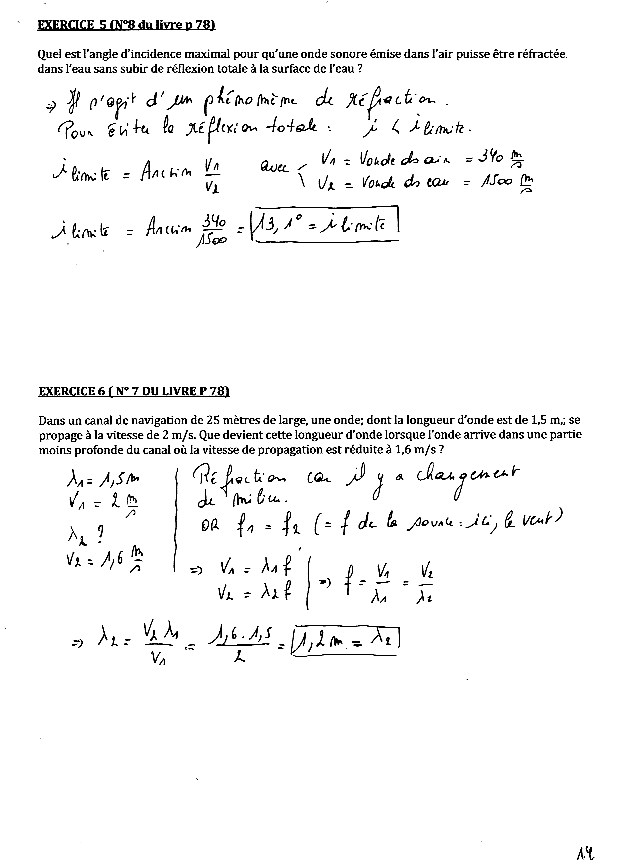 EXERCICE 5 (N°8 du livre p 78)
Quel est l'angle d'incidence maximal pour qu'une onde sonore émise dans l'air puisse être réfractée.
dans l'eau sans subir de réflexion totale à la surface de l'eau ?
⇒ Il s'agit d'un phénomène de réfraction.
Pour éviter la réflexion totale : i < i limite.
i limite = Arcsin V1/V2 avec V1 = Vonde ds air = 340 m/s
V2 = Vonde ds eau = 1500 m/s
i limite = Arcsin 340/1500 = 13,1° = i limite
EXERCICE 6 ( N° 7 DU LIVRE P 78)
Dans un canal de navigation de 25 mètres de large, une onde; dont la longueur d'onde est de 1,5 m,; se
propage à la vitesse de 2 m/s. Que devient cette longueur d'onde lorsque l'onde arrive dans une partie
moins profonde du canal où la vitesse de propagation est réduite à 1,6 m/s ?
λ1 = 1,5m
V1 = 2 m/s
λ2 ?
V2 = 1,6 m/s
Réfraction car il y a changement
de milieu.
OR f1 = f2 (= f de la source : ici, le vent)
⇒ V1 = λ1 f
V2 = λ2 f
⇒ f = V1/λ1 = V2/λ2
⇒ λ2 = V2 λ1/V1 = 1,6 . 1,5/2 = 1,2 m = λ2
14